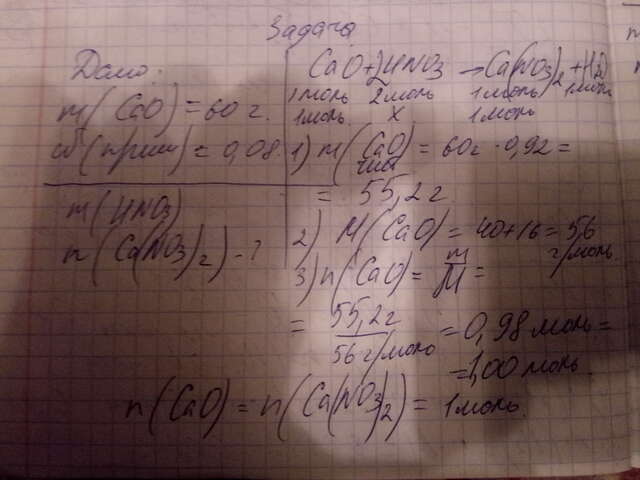 Задача
Дано:
m(CaO) = 60 г.
ω(прим) = 0,08.
m(HNO3)
n(Ca(NO3)2) - ?
CaO + 2HNO3 → Ca(NO3)2 + H2O
1 моль 2 моль 1 моль 1 моль
1 моль. X 1 моль
1) m(CaO) = 60 г · 0,92 =
чист
= 55,2 г
2) M(CaO) = 40+16 = 56
г/моль.
3) n(CaO) = m/M =
= 55,2 г / 56 г/моль = 0,98 моль =
= 1,00 моль.
n(CaO) = n(Ca(NO3)2) = 1 моль.